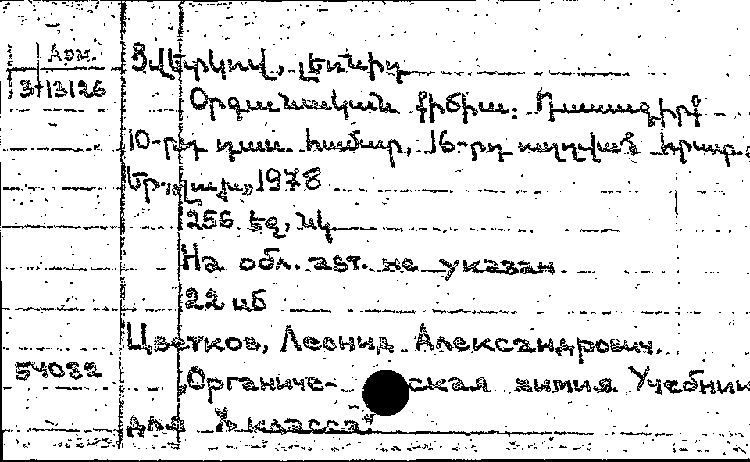 Арм.
3+13126
Ցվետկով, Լեոնիդ
Օրգանական քիմիա: Դասագիրք
10-րդ դաս. համար, 16-րդ հրատ.
Եր., «Լույս», 1978
256 էջ, նկ
На обл. авт. не указан
22 աբ
Цветков, Леонид Александрович.
54032
„Органиче- ская химия. Учебник
для X класса“